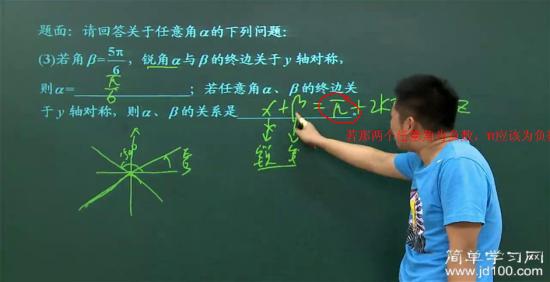 题面:请回答关于任意角α的下列问题:
(3)若角β=5π/6,锐角α与β的终边关于y轴对称,
则α=π/6;若任意角α、β的终边关
于y轴对称,则α、β的关系是
α+β=π+2kπ
z
若那两个任意角为负数,π应该为负
150°
π/6
锐
钝
简单学习网
www.jd100.com